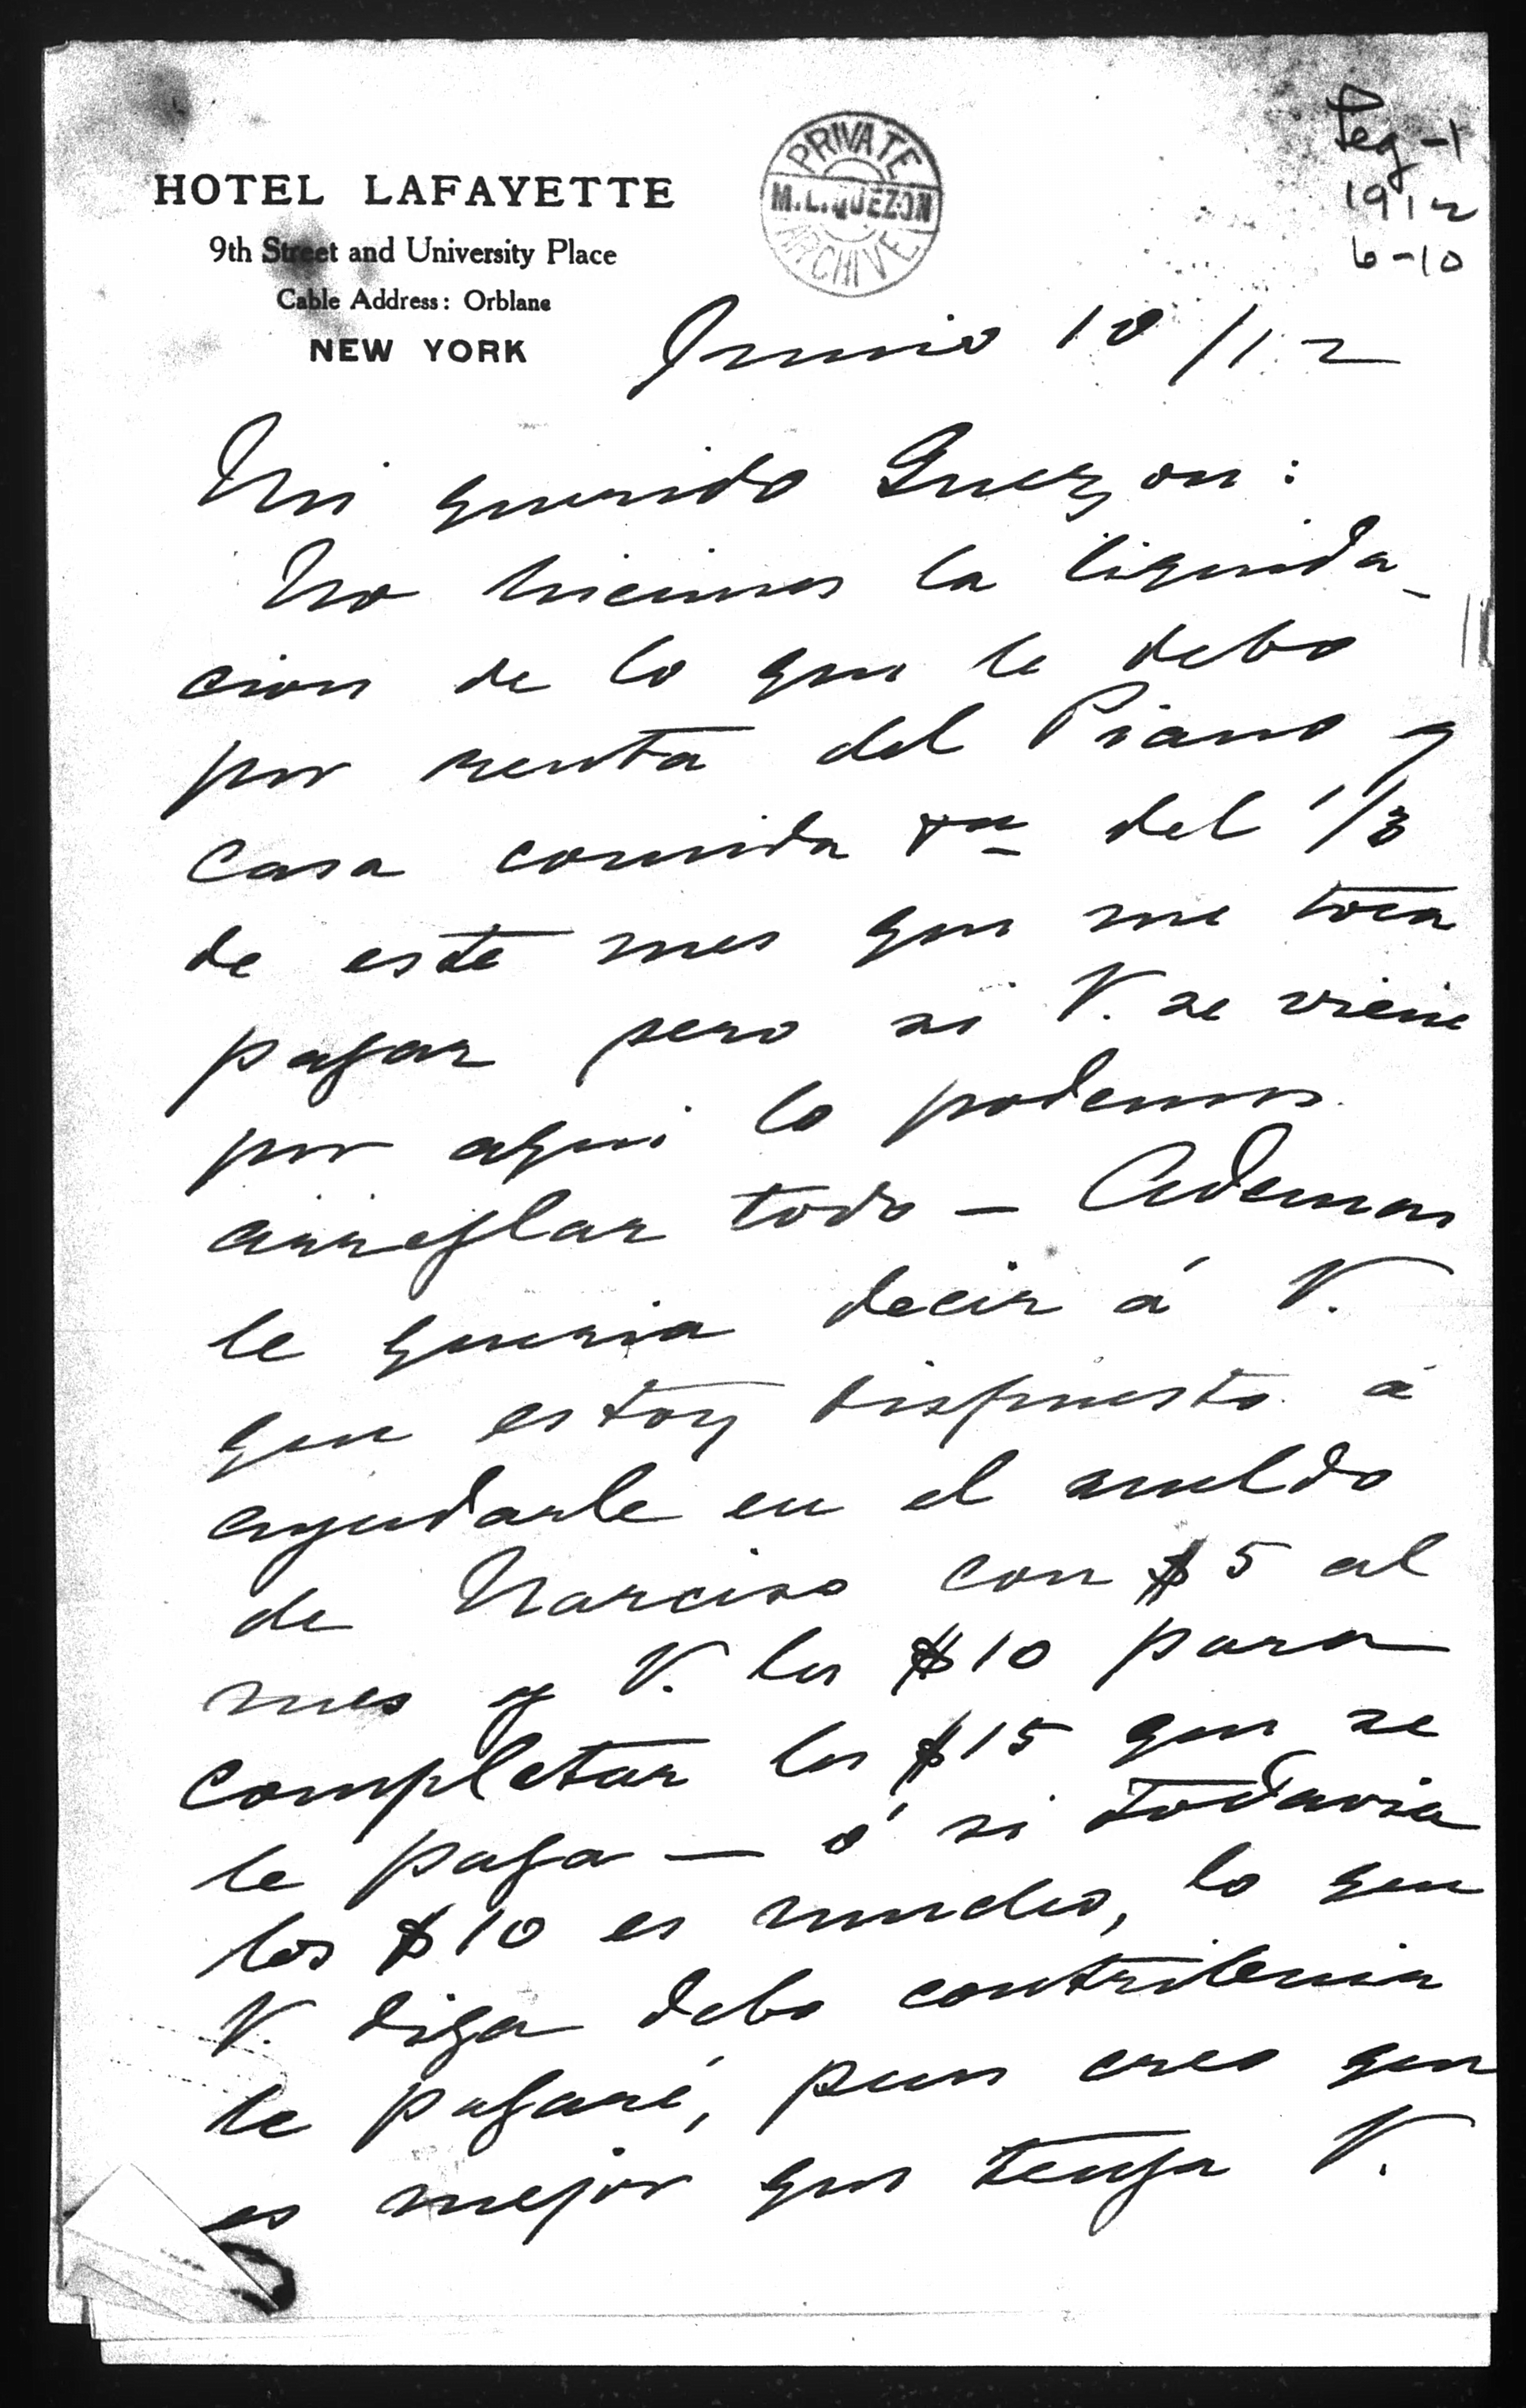 Peg-1
1912
6-10
PRIVATE
M.L.QUEZON
ARCHIVE
HOTEL LAFAYETTE
9th Street and University Place
Cable Address: Orblane
NEW YORK
Junio 10/12
Mi querido Quezon:
No hicimos la liquida-
cion de lo que le debo
por renta del Piano y
casa comida del 1/3
de este mes que me toca
pagar pero si V. se viene
por aqui lo podemos
arreglar todo - Ademas
le queria decir á V.
que estoy dispuesto á
ayudarle en el sueldo
de Narciso con $5 al
mes y V. los $10 para
completar los $15 que se
le paga — ó si todavia
los $10 es mucho, lo que
V. diga debo contribuir
le pagaré, pues creo que
es mejor que tenga V.